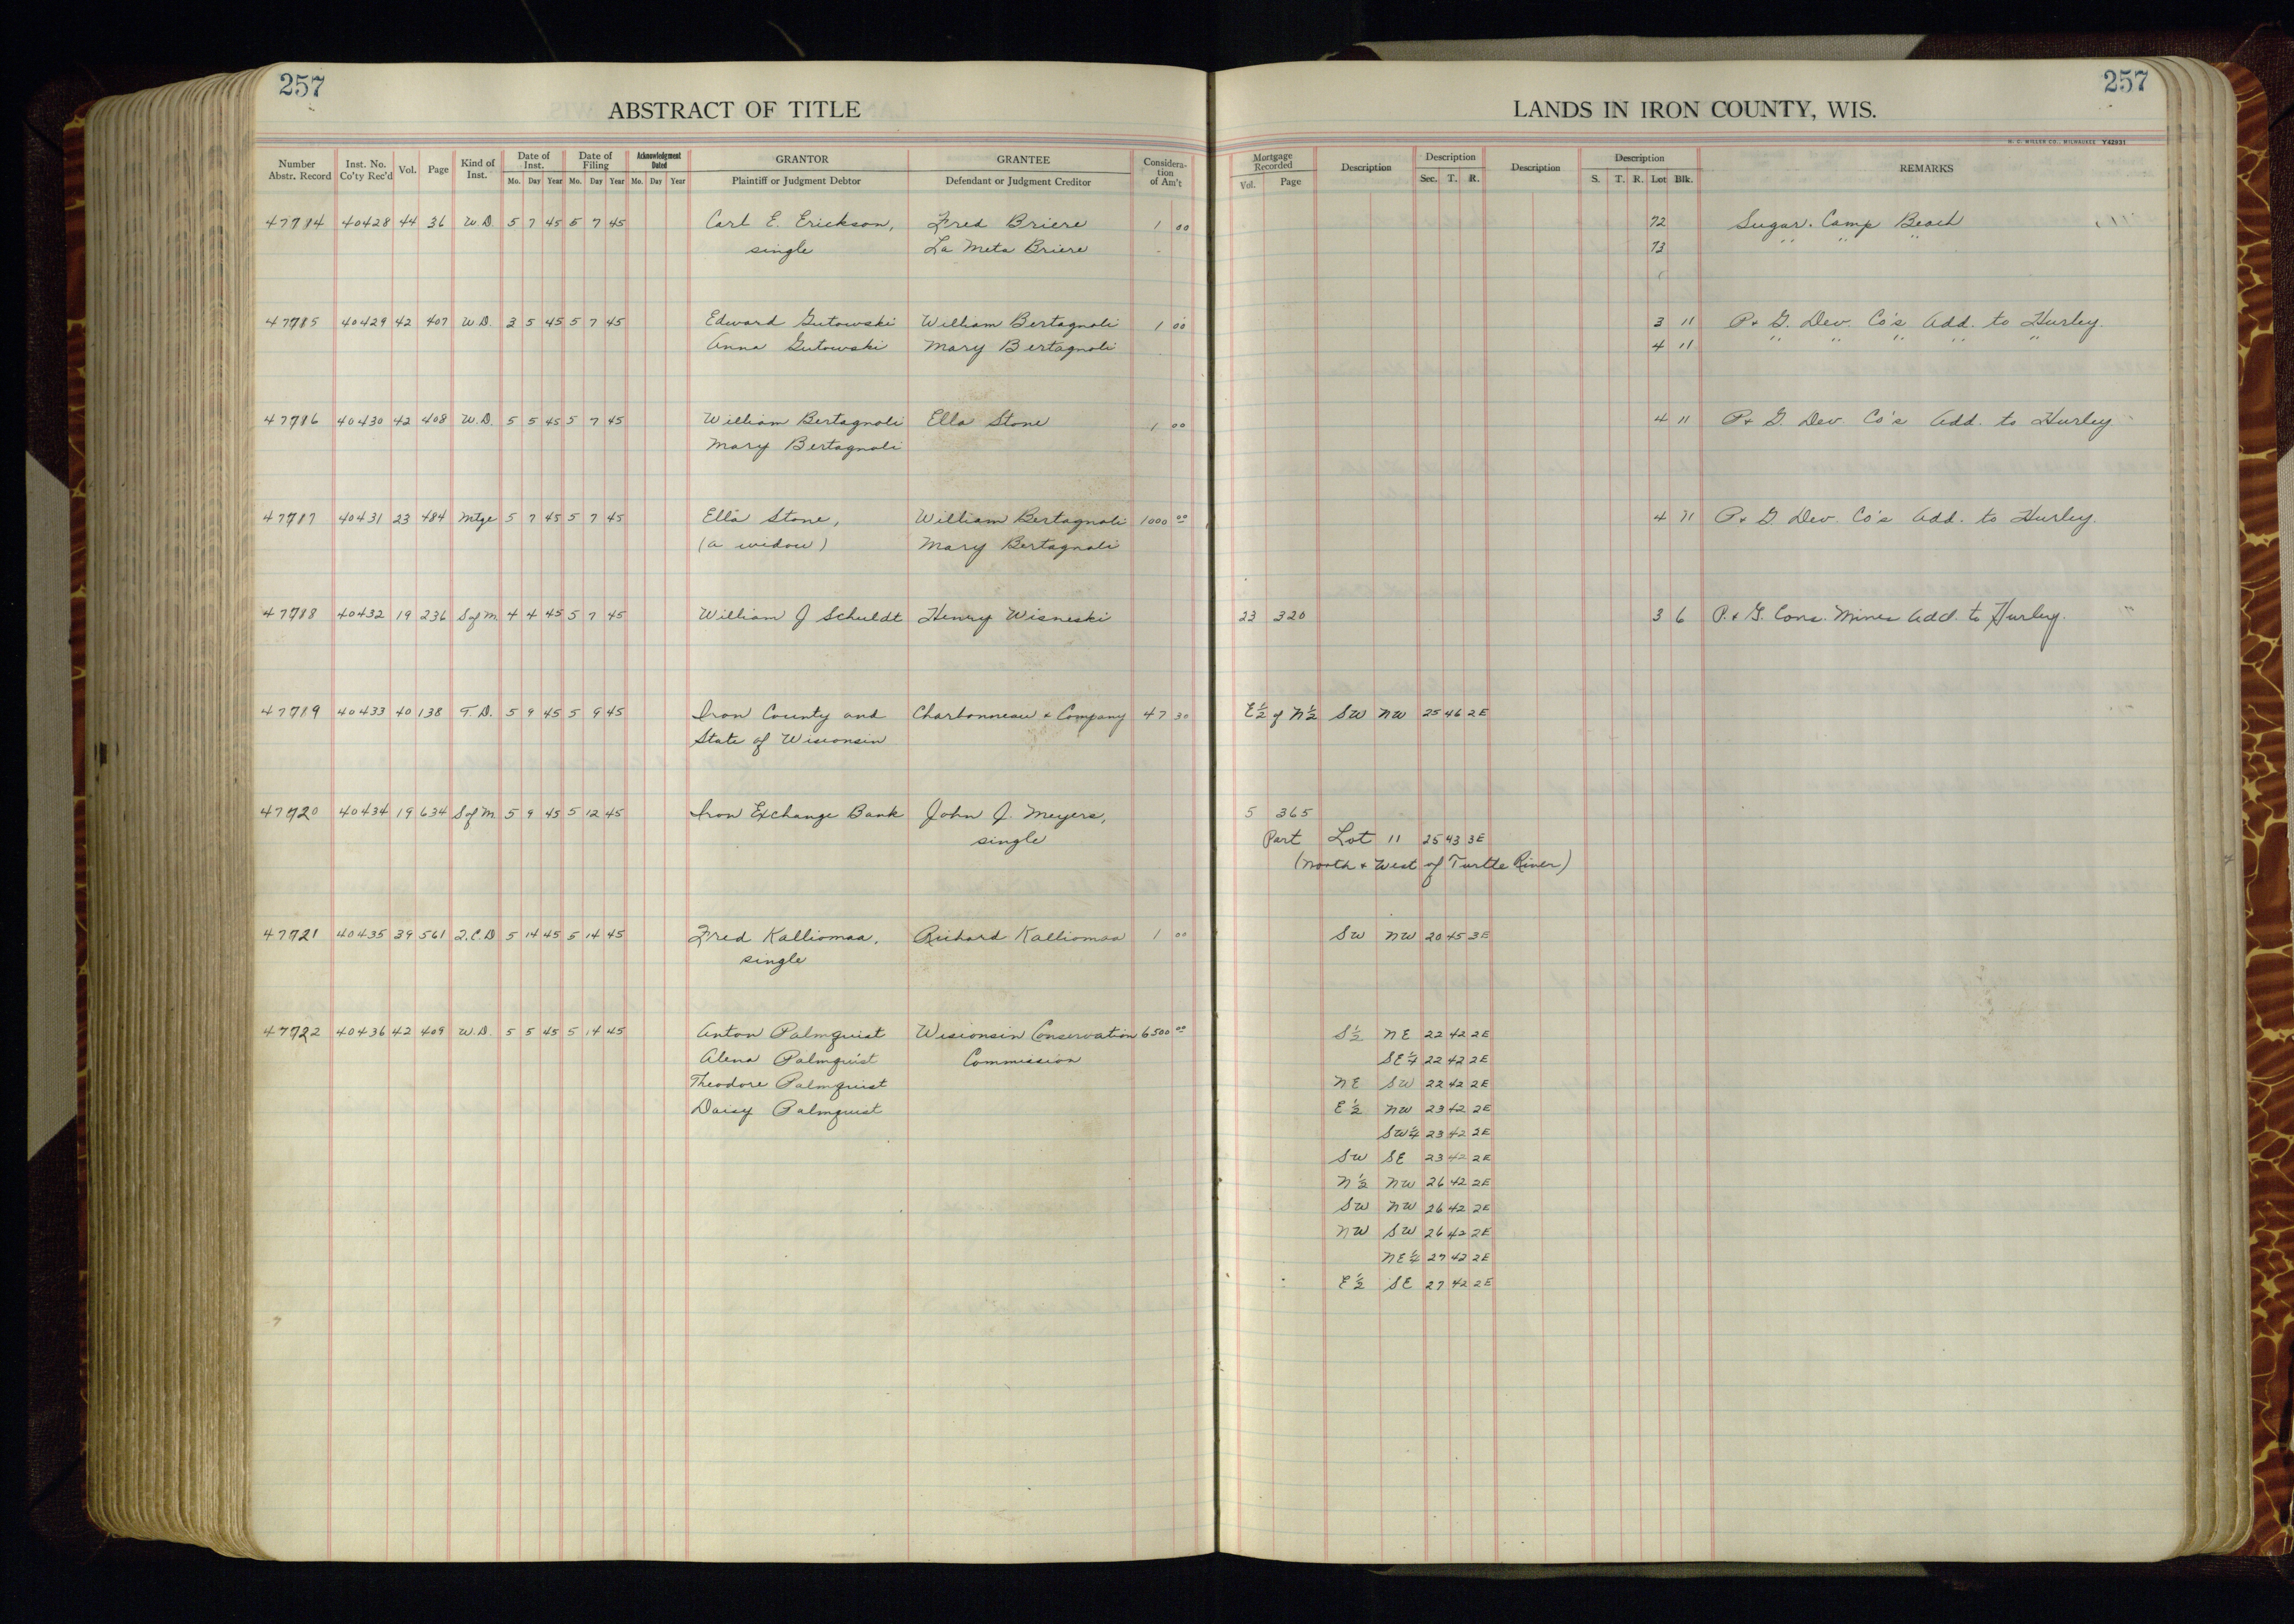 257
ABSTRACT OF TITLE
Number Abstr. Record | Inst. No. Co'ty Rec'd | Vol. | Page | Kind of Inst. | Date of Inst. Mo. Day Year | Date of Filing Mo. Day Year | Acknowledgment Dated Mo. Day Year | GRANTOR Plaintiff or Judgment Debtor | GRANTEE Defendant or Judgment Creditor | Consideration of Am't
257
LANDS IN IRON COUNTY, WIS.
H. C. MILLER CO., MILWAUKEE Y42931
Mortgage Recorded Vol. Page | Description | Description Sec. T. R. | Description | Description S. T. R. Lot Blk. | REMARKS
47714 40428 44 36 W.D. 5 7 45 5 7 45 Carl E. Erickson, Fred Briere 1 00 72 Sugar Camp Beach
single La Meta Briere 73 " " "
47715 40429 42 407 W.D. 3 5 45 5 7 45 Edward Gutowski William Bertagnoli 1 00 3 11 P & G. Dev. Co's Add. to Hurley.
Anna Gutowski Mary Bertagnoli 4 11 " " " " "
47716 40430 42 408 W.D. 5 5 45 5 7 45 William Bertagnoli Ella Stone 1 00 4 11 P & G. Dev. Co's Add. to Hurley
Mary Bertagnoli
47717 40431 23 484 Mtge 5 7 45 5 7 45 Ella Stone, William Bertagnoli 1000 00 4 11 P & G Dev. Co's Add. to Hurley.
(a widow) Mary Bertagnoli
47718 40432 19 236 S of M. 4 4 45 5 7 45 William J Schuldt Henry Wisneski 23 320 3 6 P. & G. Cons. Mines Add. to Hurley.
47719 40433 40 138 T.D. 5 9 45 5 9 45 Iron County and Charbonneau & Company 47 30 E½ of N½ SW NW 25 46 2E
State of Wisconsin
47720 40434 19 634 S of M 5 9 45 5 12 45 Iron Exchange Bank John J. Meyers, 5 365
single Part Lot 11 25 43 3E
(North & West of Turtle River)
47721 40435 39 561 Q.C.D 5 14 45 5 14 45 Fred Kalliomaa, Richard Kalliomaa 1 00 SW NW 20 45 3E
single
47722 40436 42 409 W.D. 5 5 45 5 14 45 Anton Palmquist Wisconsin Conservation 6500 00 S½ NE 22 42 2E
Alena Palmquist Commission SE¼ 22 42 2E
Theodore Palmquist NE SW 22 42 2E
Daisy Palmquist E½ NW 23 42 2E
SW¼ 23 42 2E
SW SE 23 42 2E
N½ NW 26 42 2E
SW NW 26 42 2E
NW SW 26 42 2E
NE¼ 27 42 2E
E½ SE 27 42 2E